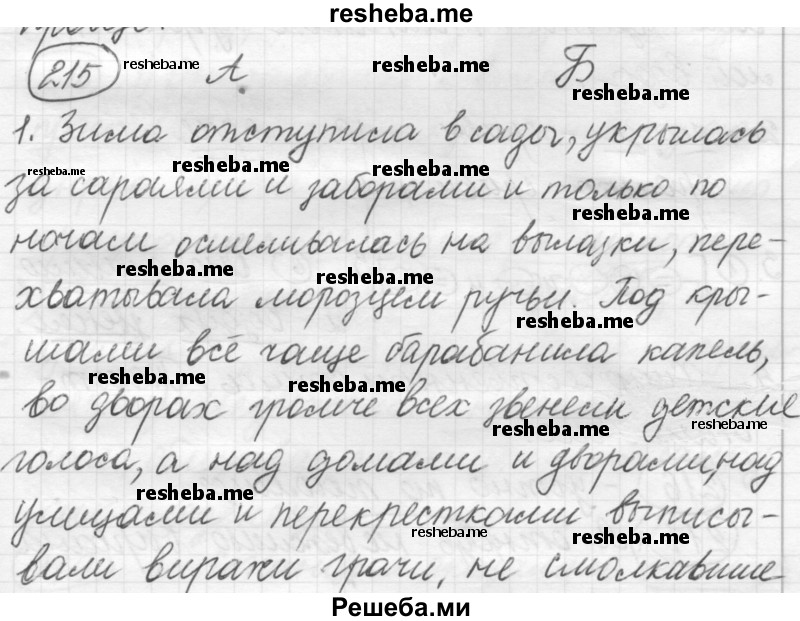 resheba.me
215 resheba.me А. resheba.me Б resheba.me
1. Зима отступила в сады, укрылась
resheba.me resheba.me resheba.me
за сараями и заборами и только по
resheba.me
ночам осмеливалась на вылазки, пере-
resheba.me resheba.me
хватывала морозцем ручьи. Под кры-
resheba.me
шами всё чаще барабанила капель,
resheba.me resheba.me
во дворах громче всех звенели детские
resheba.me resheba.me
голоса, а над домами и дворами, над
resheba.me
улицами и перекрестками выписы-
resheba.me resheba.me
вали виражи грачи, не смолкавшие
Решеба.ми